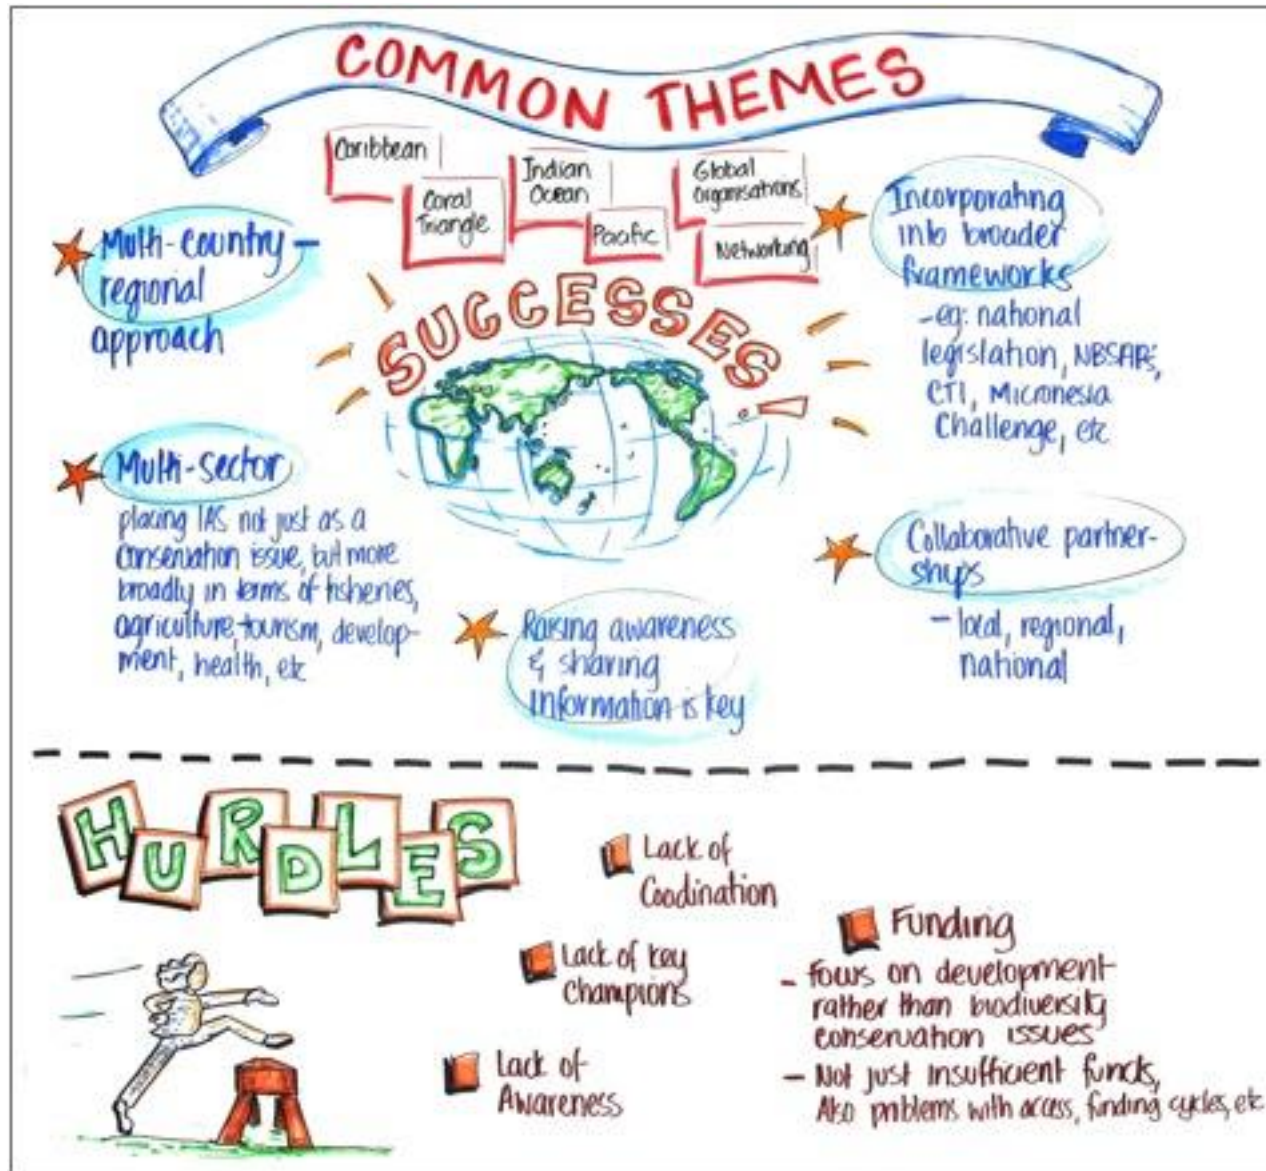 COMMON THEMES
Caribbean
Coral
Triangle
Indian
Ocean
Pacific
Global
Organisations
Networking
SUCCESSES!
Multi-country –
regional
approach
Multi-sector
placing IAS not just as a
conservation issue, but more
broadly in terms of fisheries,
agriculture, tourism, develop-
ment, health, etc
Raising awareness
& sharing
information is key
Incorporating
into broader
frameworks
-eg: national
legislation, NBSAPs,
CTI, Micronesia
Challenge, etc
Collaborative partner-
ships
- local, regional,
national
HURDLES
Lack of
Coodination
Lack of key
Champions
Lack of
Awareness
Funding
- Focus on development
rather than biodiversity
conservation issues
- Not just insufficient funds,
Also problems with access, funding cycles, etc